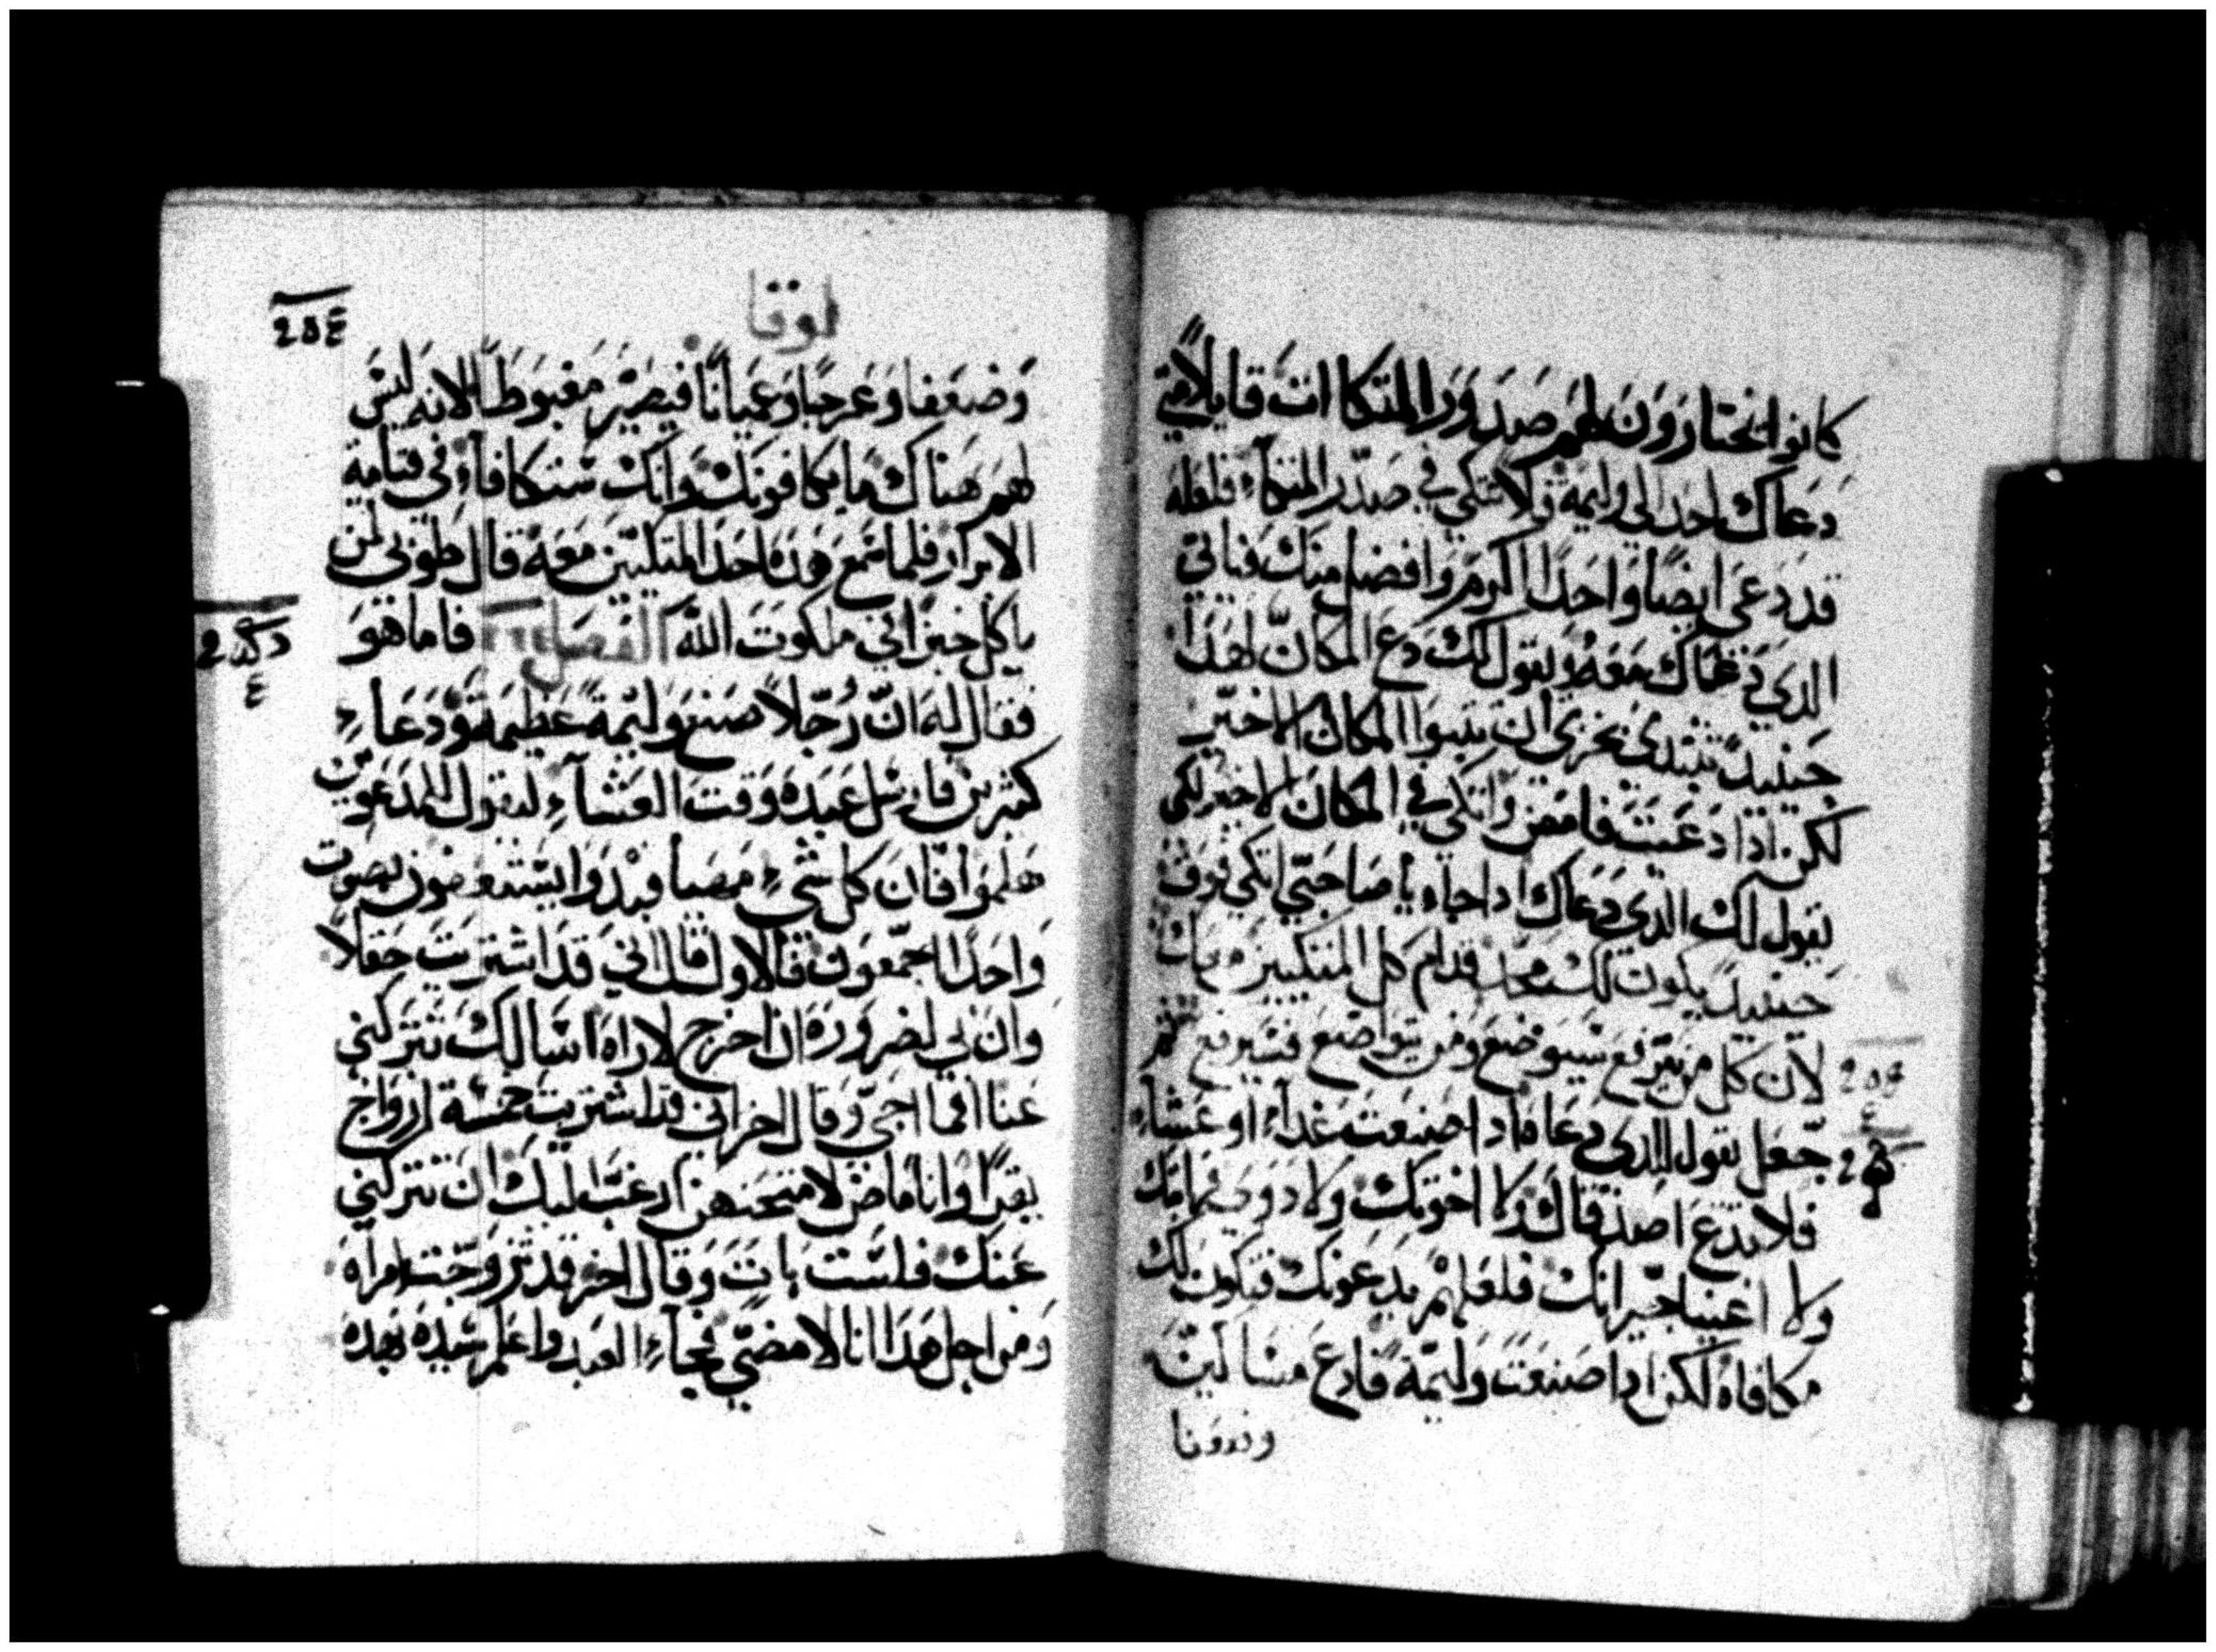 كانوا يختارون لهم صدور المتكاات قايلا متي
دعاك احد الي وليمة فلا تتكي في صدر المتكاء فلعله
قد دعي ايضا واحدا اكرم وافضل منك فياتي
الدي دعاك معه ويقول لك دع المكان لهدا
حينيد تبتدي بخزي ان تتبوا المكان الاخير
لكن ادا دعيت فامض واتكي في المكان الاخير لكي
يقول لك الدي دعاك ادا جاء يا صاحبي اتكي فوق
حينيد يكون لك مجد قدام كل المتكيين
لان كل من يترفع سيوضع ومن يتواضع فسيرفع ثم
جعل يقول للدي دعاه ادا صنعت غداء او عشاء
فلا تدع اصدقاك ولا اخوتك ولا دوي
ولا اغنيا جيرانك فلعلهم يدعونك فتكون لك
مكافاه لكن ادا صنعت وليمة فادع مساكين
لوقا
وضعفا وعرجا وعميانا فيصير مغبوطا لانه ليس
لهم هناك ما يكافونك وانك ستكافاء في قيامة
الابرار فلما سمع هده احد المتكيين معه قال طوبي لمن
ياكل خبزا في ملكوت الله الفصل فاما هو
فقال له ان رجلا صنع وليمة عظيمة ودعاء
كثيرين فارسل عبده وقت العشاء ليقول للمدعوين
هلموا فان كل شيء مهيا فبدوا يستعفون بصوت
واحد اجمعون فالاول قال اني قد اشتريت حقلا
وان لي لضرورة ان اخرج لاراه اسالك تتركني
عنا فما اجي وقال اخر اني قد اشتريت خمسة ازواج
بقرا وانا ماض لامتحنهن ارغب اليك ان تتركني
عنك فلست بات وقال اخر قد تزوجت امراه
ومن اجل هدا انا لا امضي فجاء العبد واعلم سيده بهده